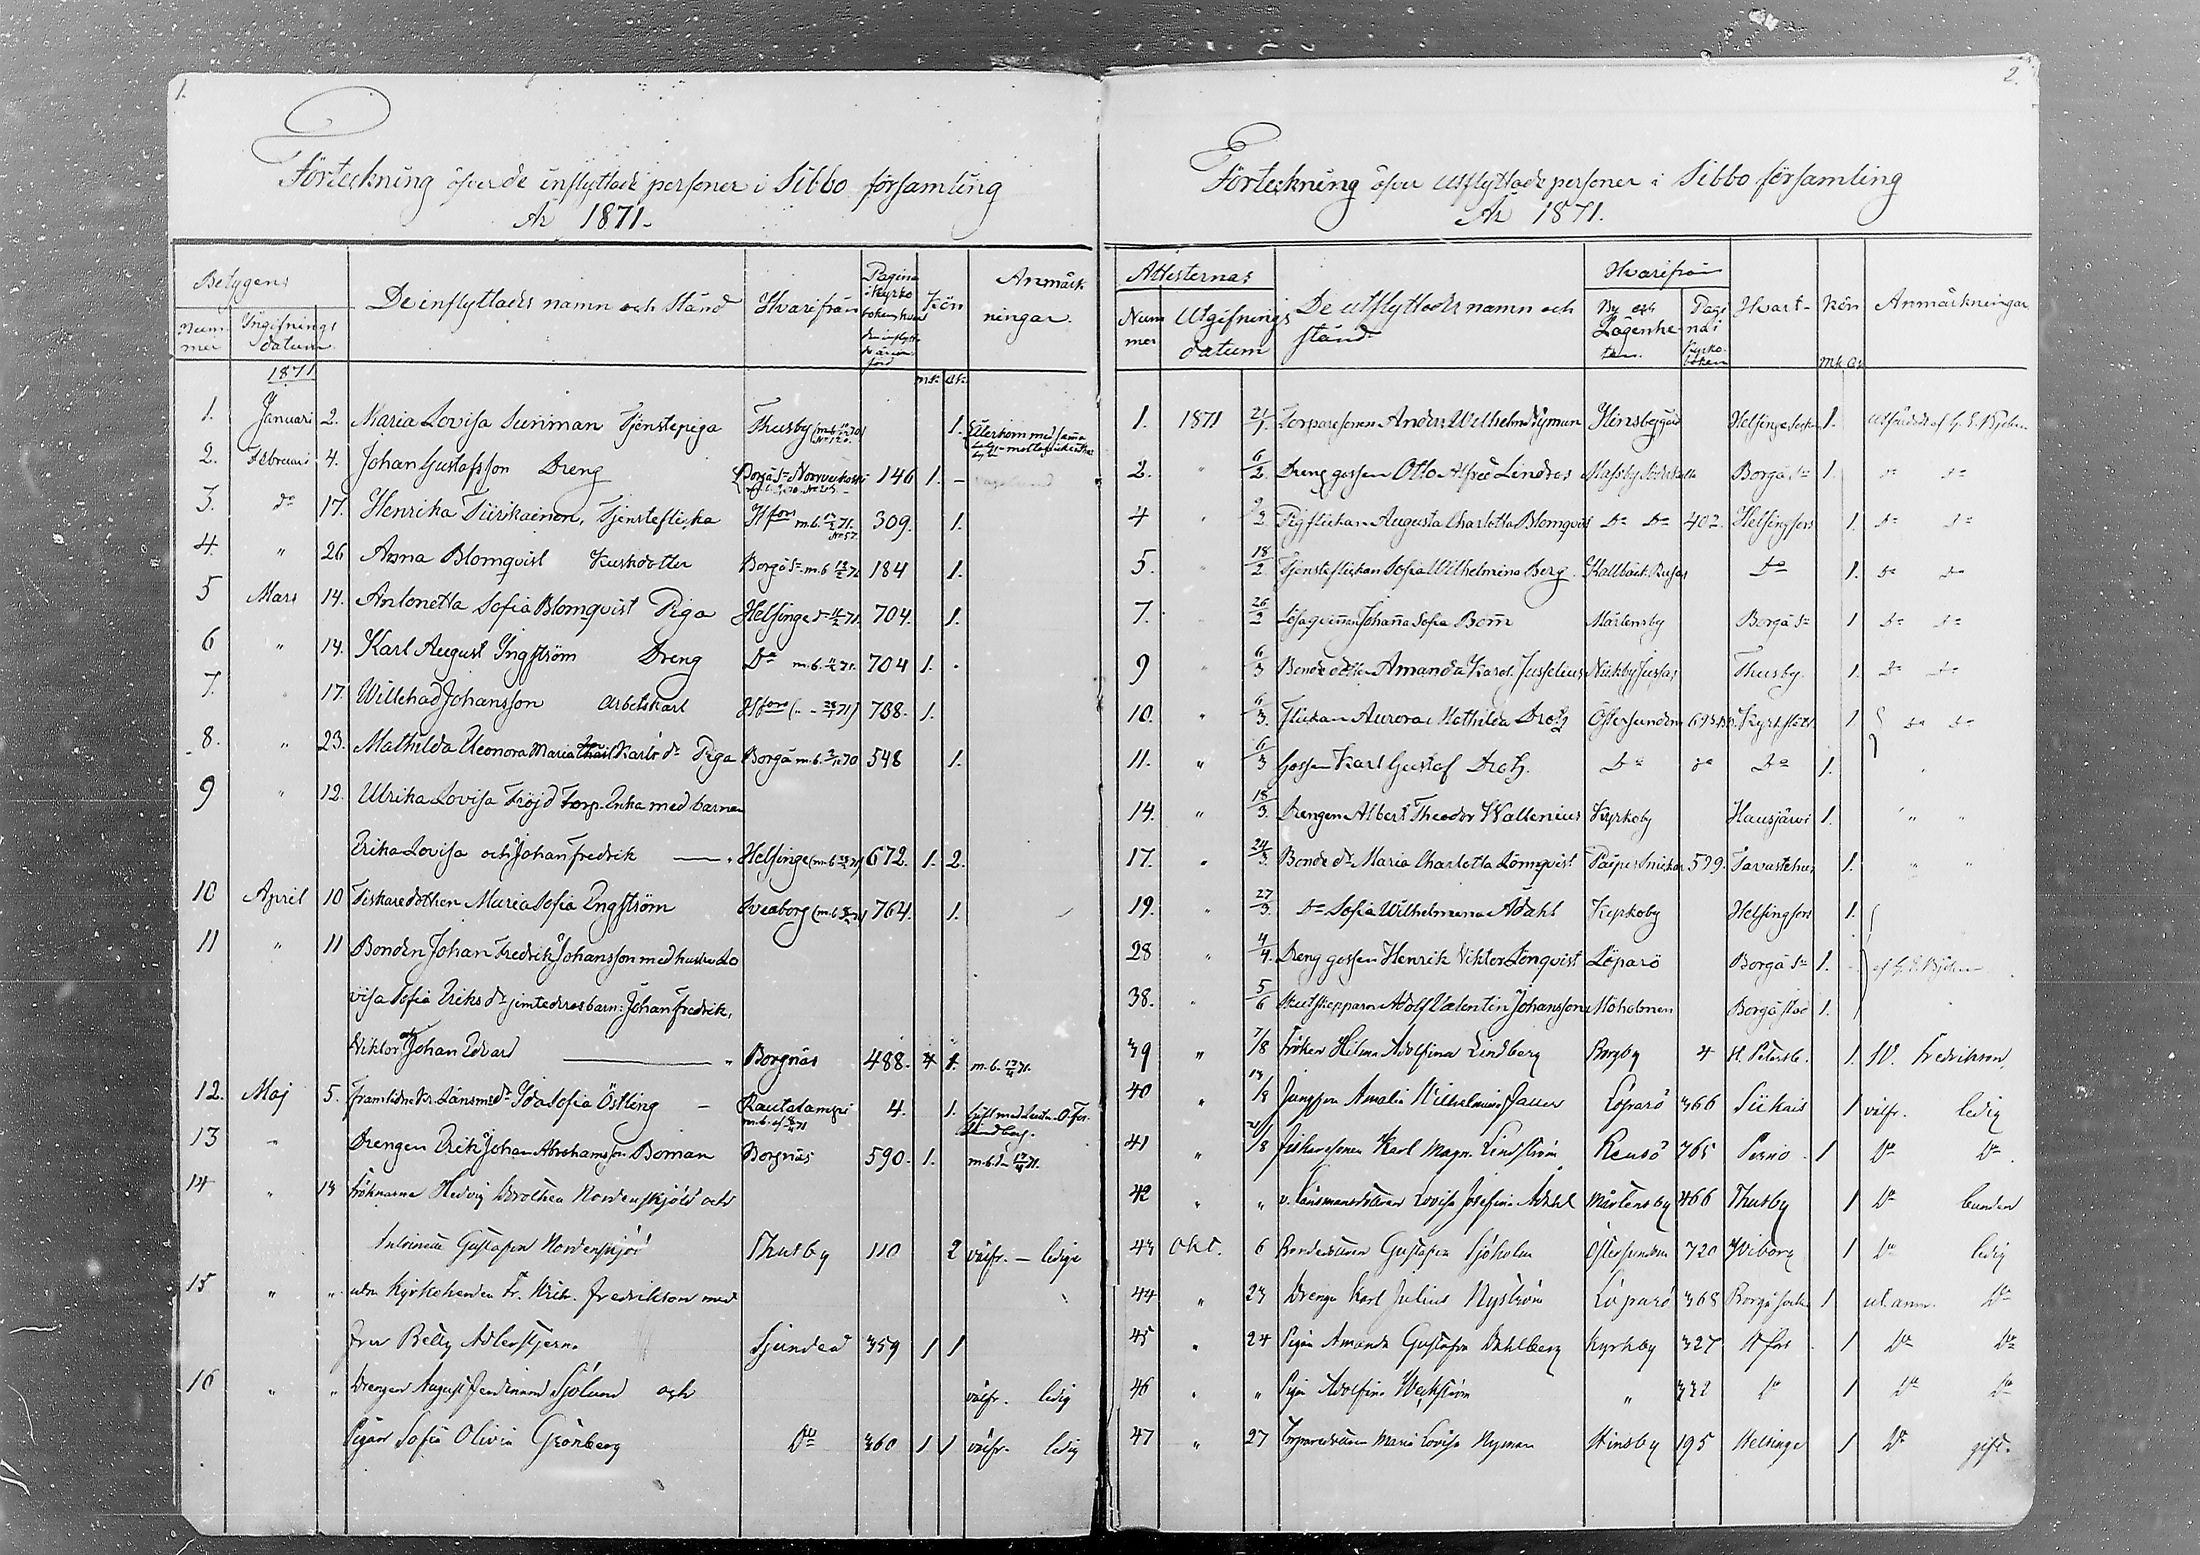 1.
Förteckning öfver de inflyttade personer i Sibbo församling
År 1871.
Betygens
Nummer
Ingifnings datum
De inflyttades namn och stånd
Hvarifrån
Pagina i kyrko boken, hvar den inflyttade är införd
Kön
mk. qk.
Anmärkningar.
1871
1. Januari 2. Maria Lovisa Sunman Tjenstepiga Thusby 1. Återkom med samma
2. Februari 4. Johan Gustafsson Dreng Borgå Sn 146 1. –
3. do 17. Henrika Tiirikainen, Tjensteflicka Hfors m.b. 71. No 57. 309. 1.
4. " 26 Anna Blomqvist Kuskdotter Borgå Sn m.b. 71 184 1.
5 Mars 14. Antonetta Sofia Blomqvist Piga Helsinge 71. 704. 1.
6 " 14. Karl August Ingström Dreng Do m.b. 71. 704 1.
7. " 17. Willehad Johansson Arbetskarl Hfors 71) 708. 1.
8. " 23. Mathilda Eleonora Maria Karls dr Piga Borgå m.b. 70 548 1.
9 " 12. Ulrika Lovisa Fröjd Torp. Enka med barnen
Erika Lovisa och Johan Fredrik — " Helsinge 672. 1. 2.
10 April 10 Fiskaredottren Maria Sofia Engström Sveaborg 764. 1.
11 " 11 Bonden Johan Fredrik Johansson med hustru Lo
visa Sofia Eriks dr jemte deras barn: Johan Fredrik,
Viktor och Johan Edvard — " Borgnäs 488. 4 1. m.b. 71.
12. Maj 5. Framlidne Kr. Länsmsdr Ida Sofia Östling – Rautalampi 4. 1.
13 " Drengen Erik Johan Abrahamsson Boman Borgnäs 590. 1. m.b. 71.
14 " 13 Fröknarna Hedvig Dorothea Nordenskjöld och
Gustafva Nordenskjöld Thusby 110 2 välfr. – lediga
15 " " Kyrkoherden Fr. Wilh. Fredrikson med
fru Betty Adlerstjerna Sjundeå 359 1 1
16 " " Drengen August Ferdinand Sjölund och välfr. ledig
Pigan Sofia Olivia Grönberg Do 360 1 1 välfr. ledig
2.
Förteckning öfver utflyttade personer i Sibbo församling
År 1871.
Attesternas
Nummer
Utgifnings datum
De utflyttades namn och stånd
Hvarifrån
By och Lägenheten.
Pagina i Kyrko-boken
Hvart-
Kön
Mk Qk
Anmärkningar
1. 1871 21/1. Torparesonen Anders Wilhelm Nyman Hinsbygård Helsinge Sockn 1.
2. " 6/2. Drenggossen Otto Alfred Lindros Massby Borgå Sn 1. do do
4 " 9/2 Pigflickan Augusta Charlotta Blomqvist Do Do 402. Helsingfors 1. Do Do
5. " 18/2. Tjensteflickan Sofia Wilhelmina Berg Kallbäck Do 1. Do Do
7. " 26/2 Lösaqvinnan Johanna Sofia Bom Mårtensby Borgå Sn 1 Do Do
9 " 6/3 Bondedottren Amanda Karol. Jusselius Nickby Jussas Thusby. 1. Do Do
10. " 6/3. Flickan Aurora Mathilda Östersundom Kyrkslätt 1 Do Do
11. " 6/3 Gossen Karl Gustaf Do do Do 1.
14. " 18/3. Drengen Albert Theodor Wallenius Kyrkoby Hausjärvi 1. " "
17. " 24/3. Bonde dr Maria Charlotta Lönnqvist Paipis 599. Tavastehus 1. " "
19. " 27/3. Do Sofia Wilhelmina Adahl Kyrkoby Helsingfors 1.
28 " 4/4. Drenggossen Henrik Viktor Lönqvist Löparö Borgå Sn 1.
38. " 5/6 Skutskepparn Adolf Valentin Johansson Moholmen Borgå stad 1.
39 " 7/8 Fröken Hilma Adolfina Lindberg Borgby 4 St. Petersb. 1. W. Fredrikson
40 " 13/8 Jungfrun Amalia Wilhelmina Löparö 366 Siikais 1 välfr. ledig
41 " 21/8 Fiskaresonen Karl Magn. Lindström Rensö 765 Perno 1 Do Do
42 " " v. Länsmansdottren Lovisa Josefina Adahl Mårtensby 466 Thusby 1 Do bunden
43 Okt. 6 Bondedottren Gustafva Sjöholm Östersundom 720 Wiborg 1 Do ledig
44 " 23 Drengen Karl Julius Nyström Löparö 368 Borgå sockn 1 ut. anm. Do
45 " 24 Pigan Amanda Gustafva Dahlberg Kyrkby 327 Hfors 1 Do Do
46 " " Pigan Adolfina Weckström " 332 Do 1 Do Do
47 " 27 Torparedottren Maria Lovisa Nyman Hinsby 195 Helsinge 1 Do gift.